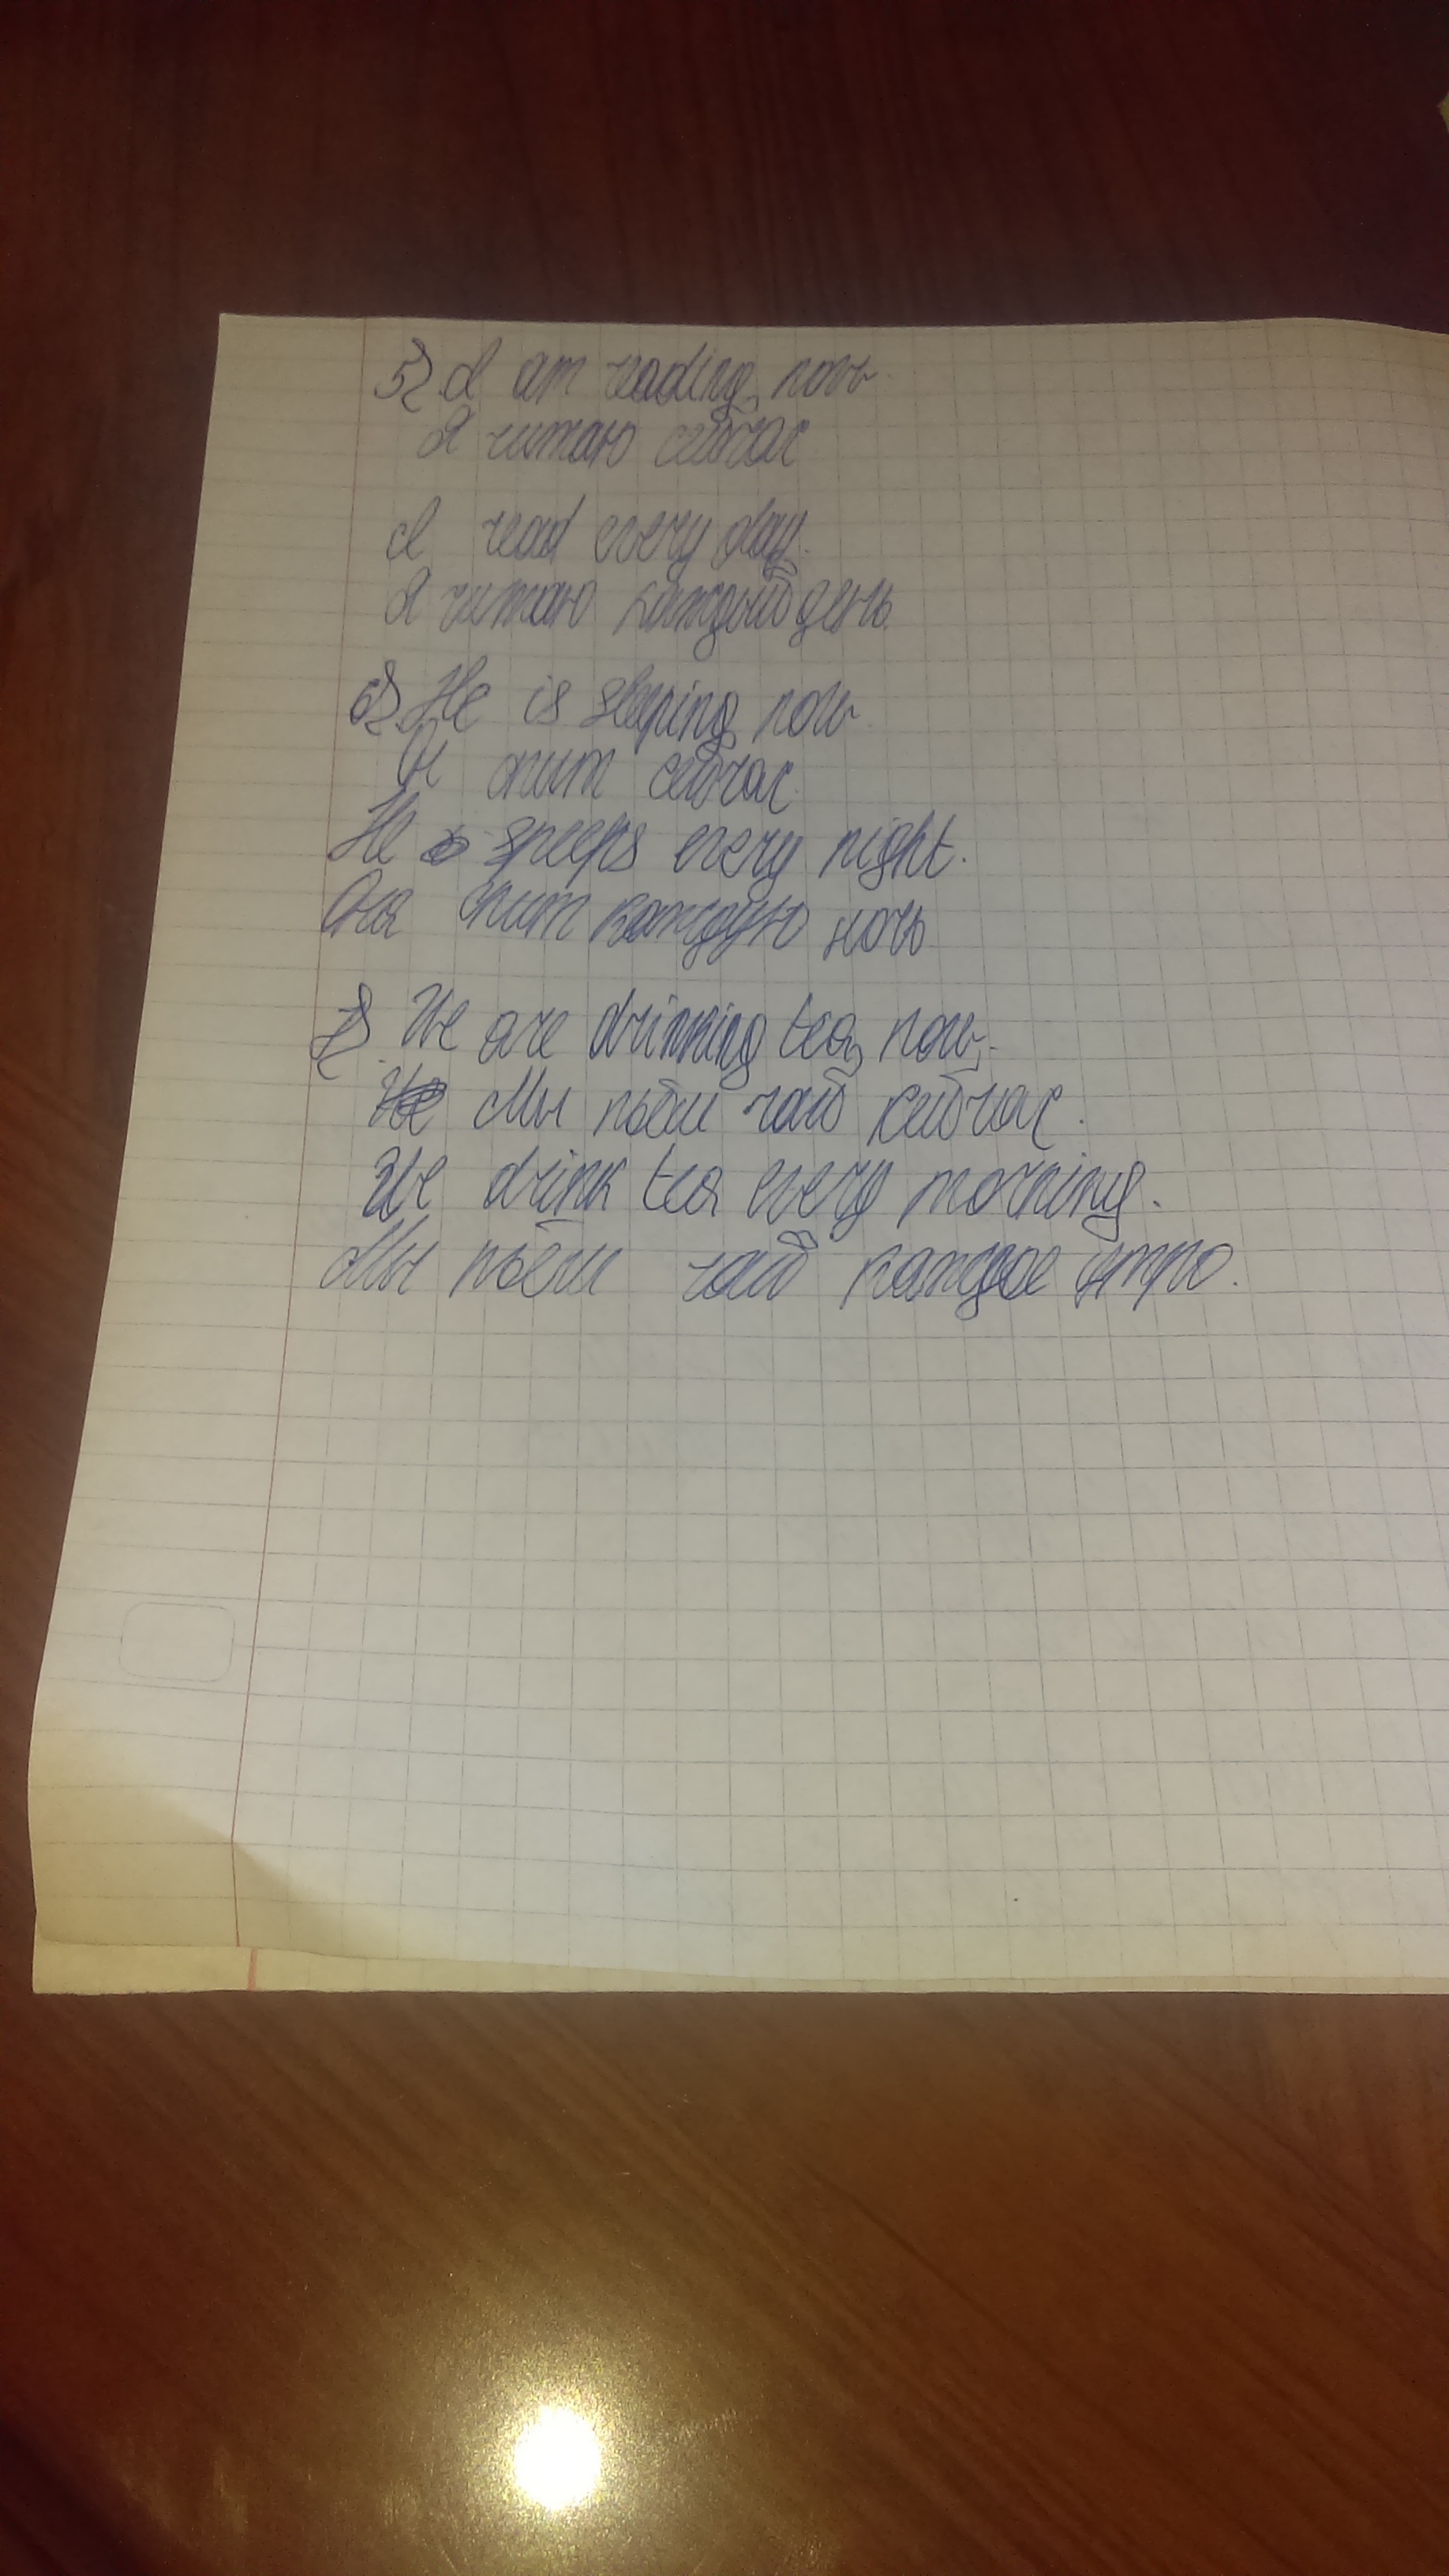 5) I am reading now.
Я читаю сейчас
I read every day.
Я читаю каждый день.
6) He is sleeping now.
спит сейчас.
He speeps every night.
Она спит каждую ночь.
7) We are drinking tea now.
Мы пьём чай сейчас.
We drink tea every morning.
Мы пьём чай каждое утро.